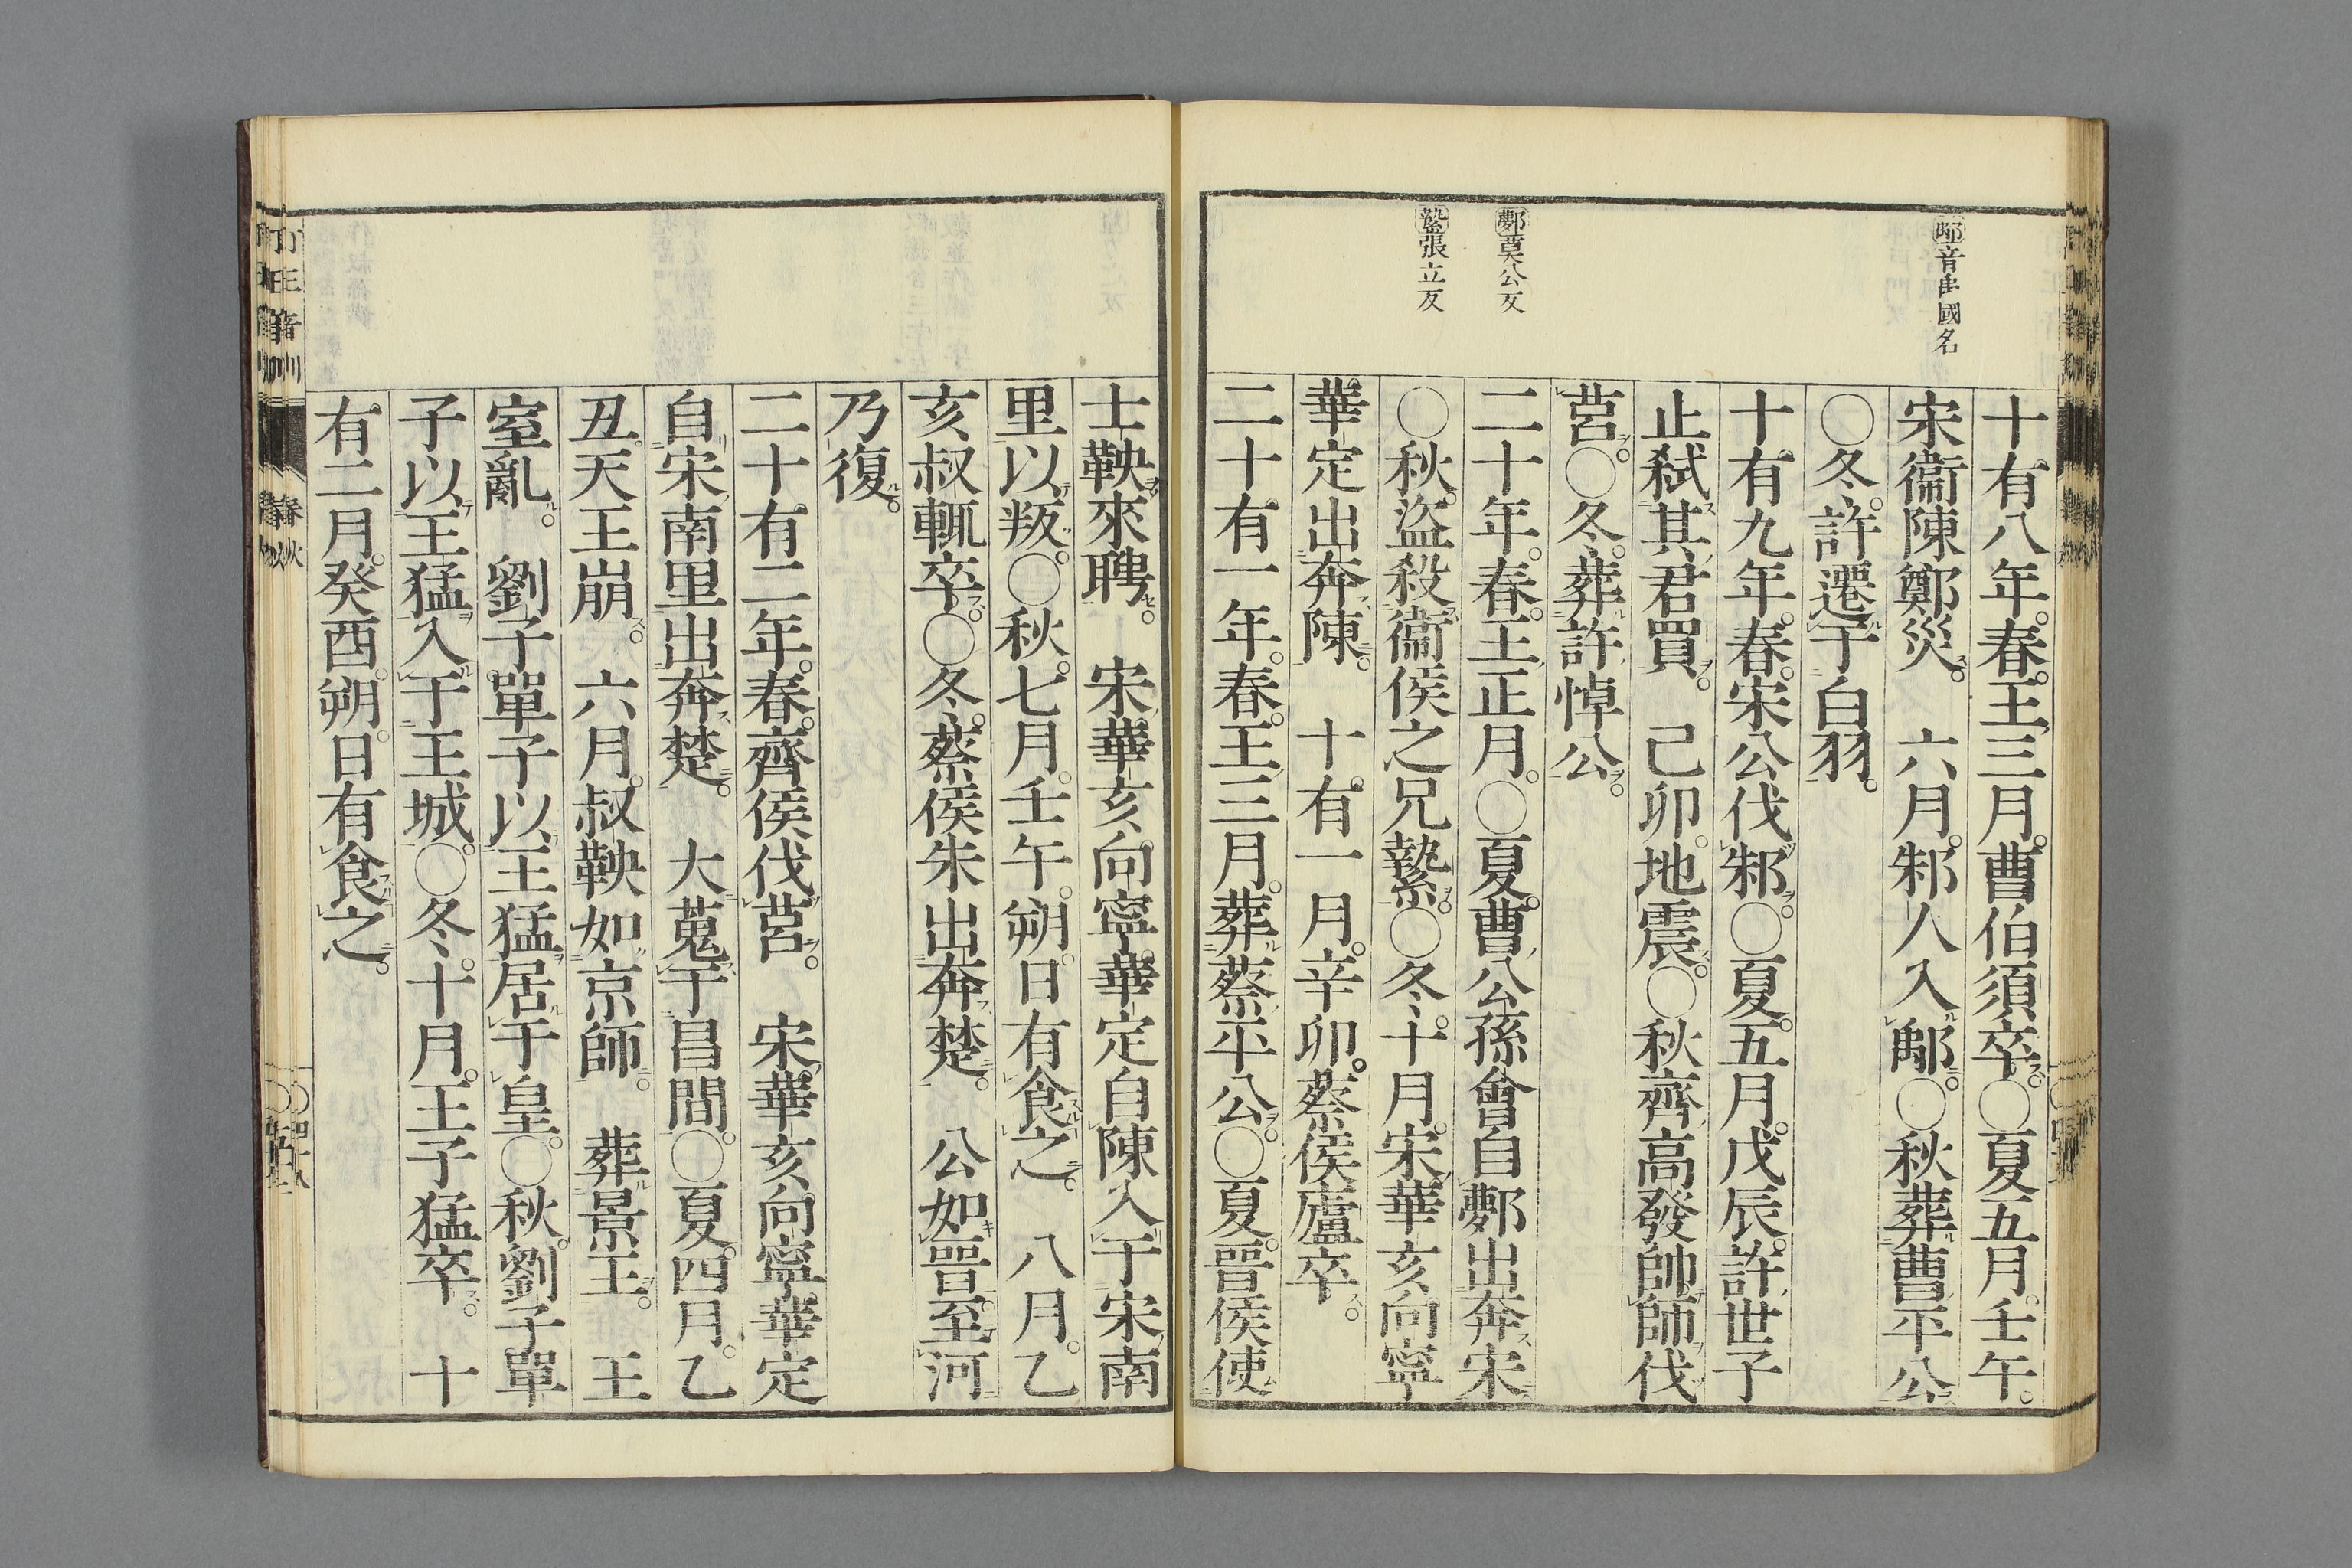 鄅音禹國名
鄸莫公反
縶張立反
十有八年。春。王三月。曹伯須卒。〇夏五月。壬午。
宋衞陳鄭災。　六月。邾人入鄅。〇秋葬曹平公
〇冬。許遷于白羽。
十有九年。春。宋公伐邾。〇夏。五月。戊辰。許世子
止弑其君買。　己卯。地震。〇秋齊高發帥師伐
莒。〇冬。葬許悼公。
二十年。春。王正月。〇夏。曹公孫會自鄸出奔宋
〇秋。盜殺衞侯之兄縶。〇冬。十月。宋華亥向寧
華定出奔陳。　十有一月。辛卯。蔡侯廬卒。
二十有一年。春。王三月。葬蔡平公。〇夏。晉侯使
士鞅來聘。　宋華亥向寧華定自陳入于宋南
里以叛。〇秋。七月。壬午。朔。日有食之。　八月。乙
亥叔輒卒。〇冬。蔡侯朱出奔楚。　公如晉至河
乃復。
二十有二年。春。齊侯伐莒。　宋華亥向寧華定
自宋南里出奔楚。　大蒐于昌間。〇夏。四月。乙
丑。天王崩。　六月。叔鞅如京師。　葬景王。　王
室亂。　劉子單子以王猛居于皇。〇秋。劉子單
子以王猛入于王城。〇冬。十月。王子猛卒。　十
有二月。癸酉。朔。日有食之。
春秋